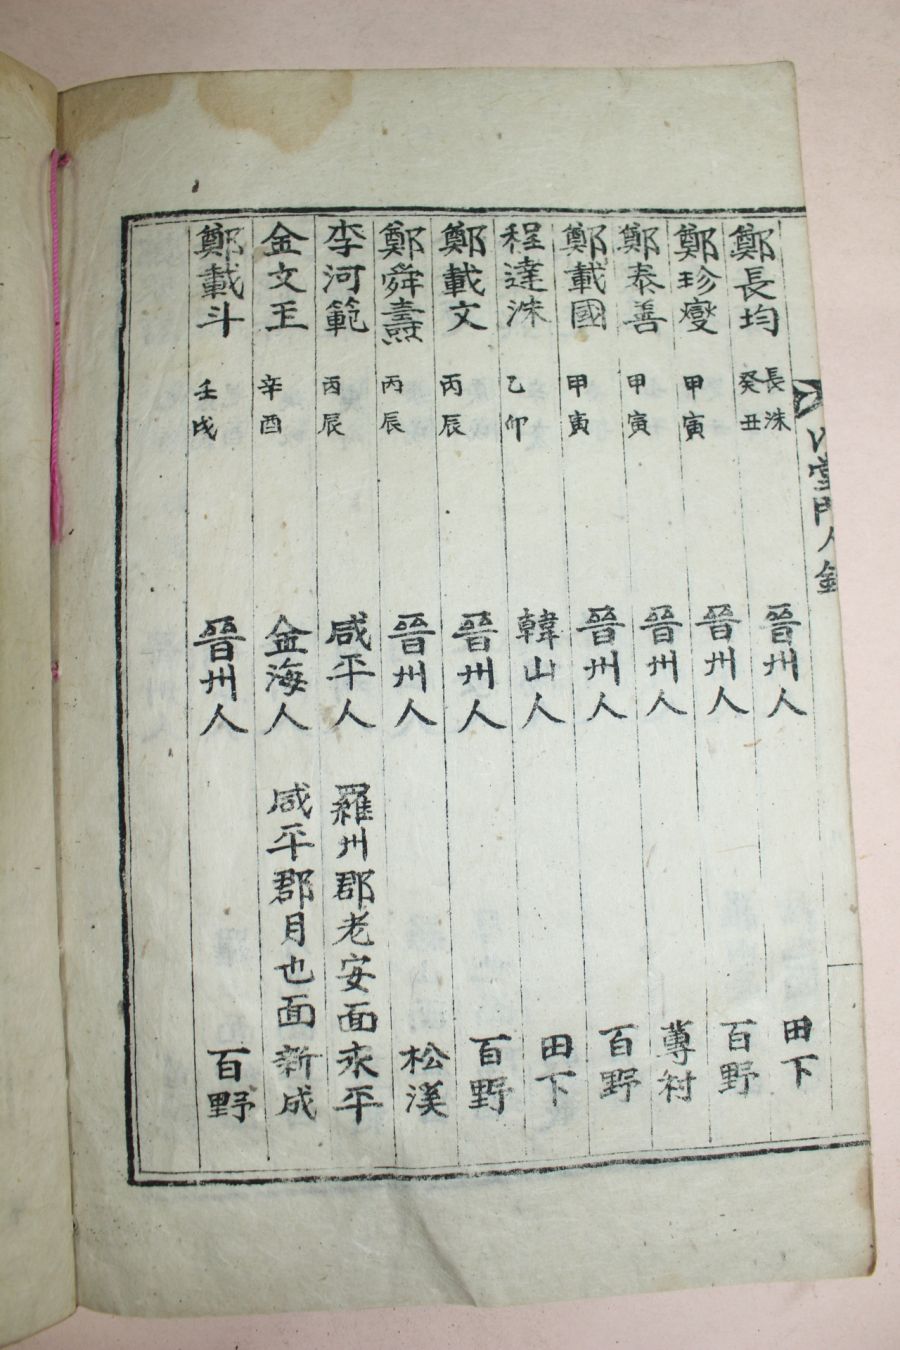 堂門人錄
鄭長均 長洙 癸丑 晉州人 田下
鄭珍燮 甲寅 晉州人 百野
鄭泰善 甲寅 晉州人 蓴村
鄭載國 甲寅 晉州人 百野
程達洙 乙卯 韓山人 田下
鄭載文 丙辰 晉州人 百野
鄭舜壽 丙辰 晉州人 松溪
李河範 丙辰 咸平人 羅州郡老安面永平
金文王 辛酉 金海人 咸平郡月也面新成
鄭載斗 壬戌 晉州人 百野